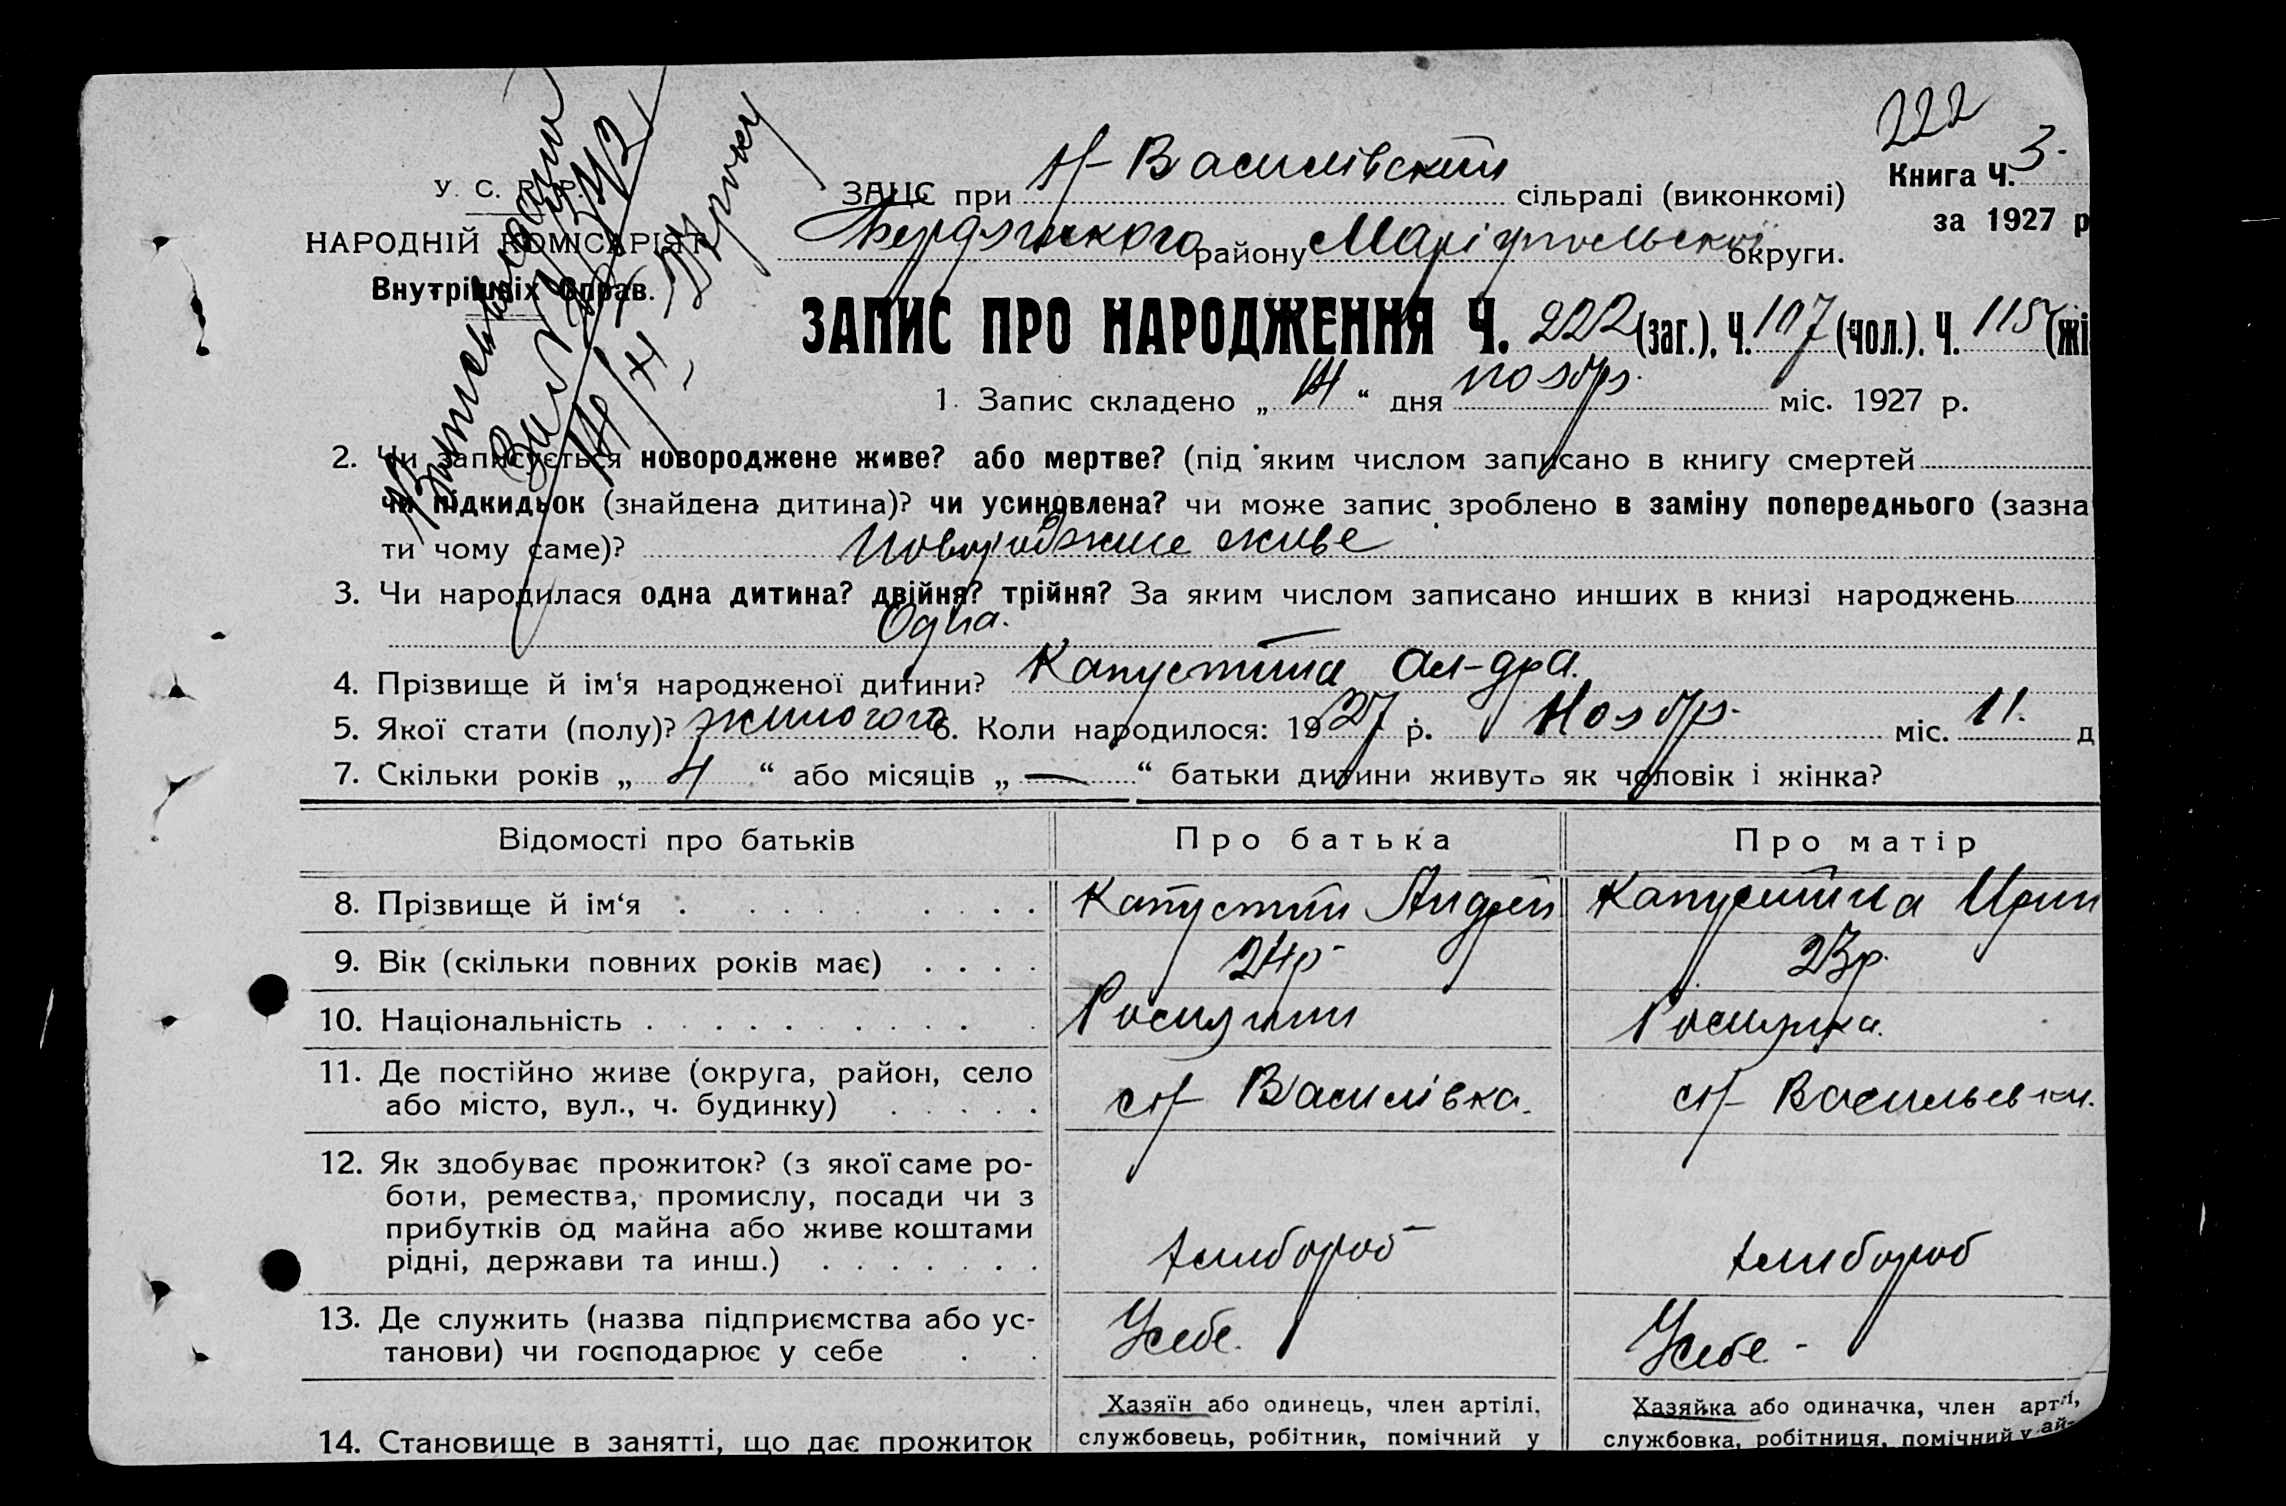 222
Книга Ч. 3.
за 1927 р
У. С. Р. Р.
НАРОДНІЙ КОМІСАРІЯТ
Внутрішніх Справ.
ЗАЦС при Н-Василівскій сільраді (виконкомі)
Бердянского району Маріупольської округи.
ЗАПИС ПРО НАРОДЖЕННЯ Ч. 222 (заг.), Ч. 107 (чол.). Ч. 115 (жі
1. Запис складено „ 14 “ дня ноябр. міс. 1927 р.
2. Чи записується новороджене живе? або мертве? (під яким числом записано в книгу смертей
чи підкидьок (знайдена дитина)? чи усиновлена? чи може запис зроблено в заміну попереднього (зазна
ти чому саме)? Новороджине живе
3. Чи народилася одна дитина? двійня? трійня? За яким числом записано инших в книзі народжень
Одна.
4. Прізвище й ім‘я народженої дитини? Капустина Ал-дра.
5. Якої стати (полу)? жиночого 6. Коли народилося: 1927 р. Ноябр. міс. 11. д
7. Скільки років „ 4 “ або місяців „ — “ батьки дитини живуть як чоловік і жінка?
Відомості про батьків Про батька Про матір
8. Прізвище й ім‘я Капустин Андрей Капустина Ирин
9. Вік (скільки повних років має) 24р- 23р.
10. Національність Росиянин Росиянка.
11. Де постійно живе (округа, район, село
або місто, вул., ч. будинку) с Н- Василівка. с Н- Васильевки.
12. Як здобуває прожиток? (з якої саме ро-
боти, ремества, промислу, посади чи з
прибутків од майна або живе коштами
рідні, держави та инш.) хлибороб хлибороб
13. Де служить (назва підприємства або ус-
танови) чи господарює у себе Усебе. Усебе -
Хазяїн або одинець, член артілі, Хазяйка або одиначка, член арті,
14. Становище в занятті, що дає прожиток службовець, робітник, помічний у службовка, робітниця, помічний у ай-